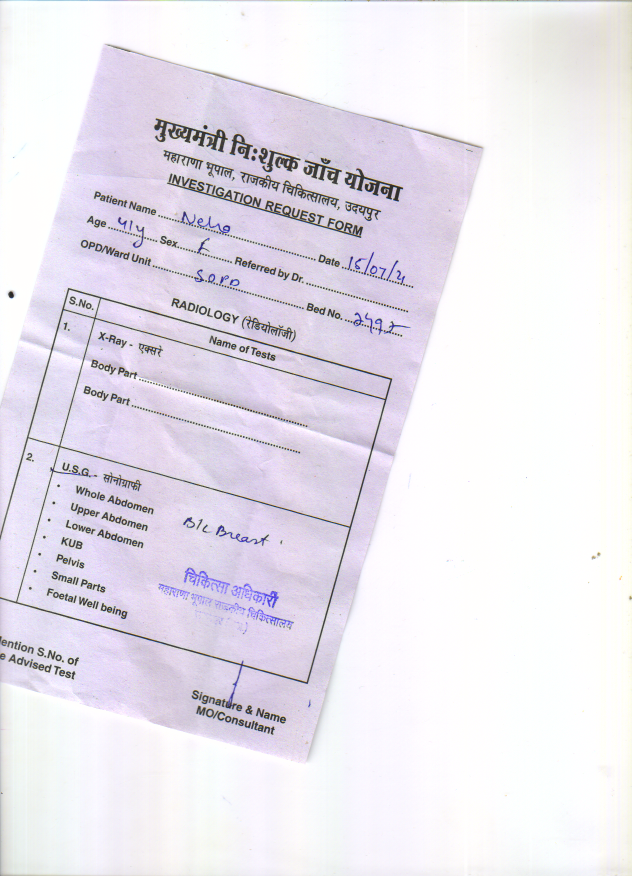 मुख्यमंत्री निःशुल्क जाँच योजना
महाराणा भूपाल, राजकीय चिकित्सालय, उदयपुर
INVESTIGATION REQUEST FORM
Patient Name ........ Neha ........ Date 15/07/21
Age ........ Sex F Referred by Dr. ........
OPD/Ward Unit ........ SOPD ........ Bed No. ........
RADIOLOGY (रेडियोलॉजी)
S.No. Name of Tests
1. X-Ray - एक्सरे
Body Part ........
Body Part ........
2. U.S.G. - सोनोग्राफी
• Whole Abdomen
• Upper Abdomen
• Lower Abdomen
• KUB
• Pelvis
• Small Parts
• Foetal Well being
B/L Breast
चिकित्सा अधिकारी
महाराणा भूपाल राजकीय चिकित्सालय
Mention S.No. of
Advised Test
Signature & Name
MO/Consultant